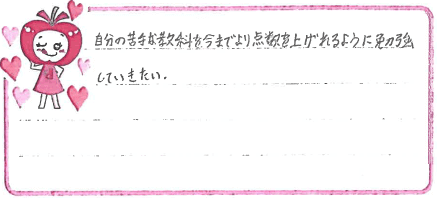 自分の苦手な教科を今までより点数を上げれるように勉強
していきたい.